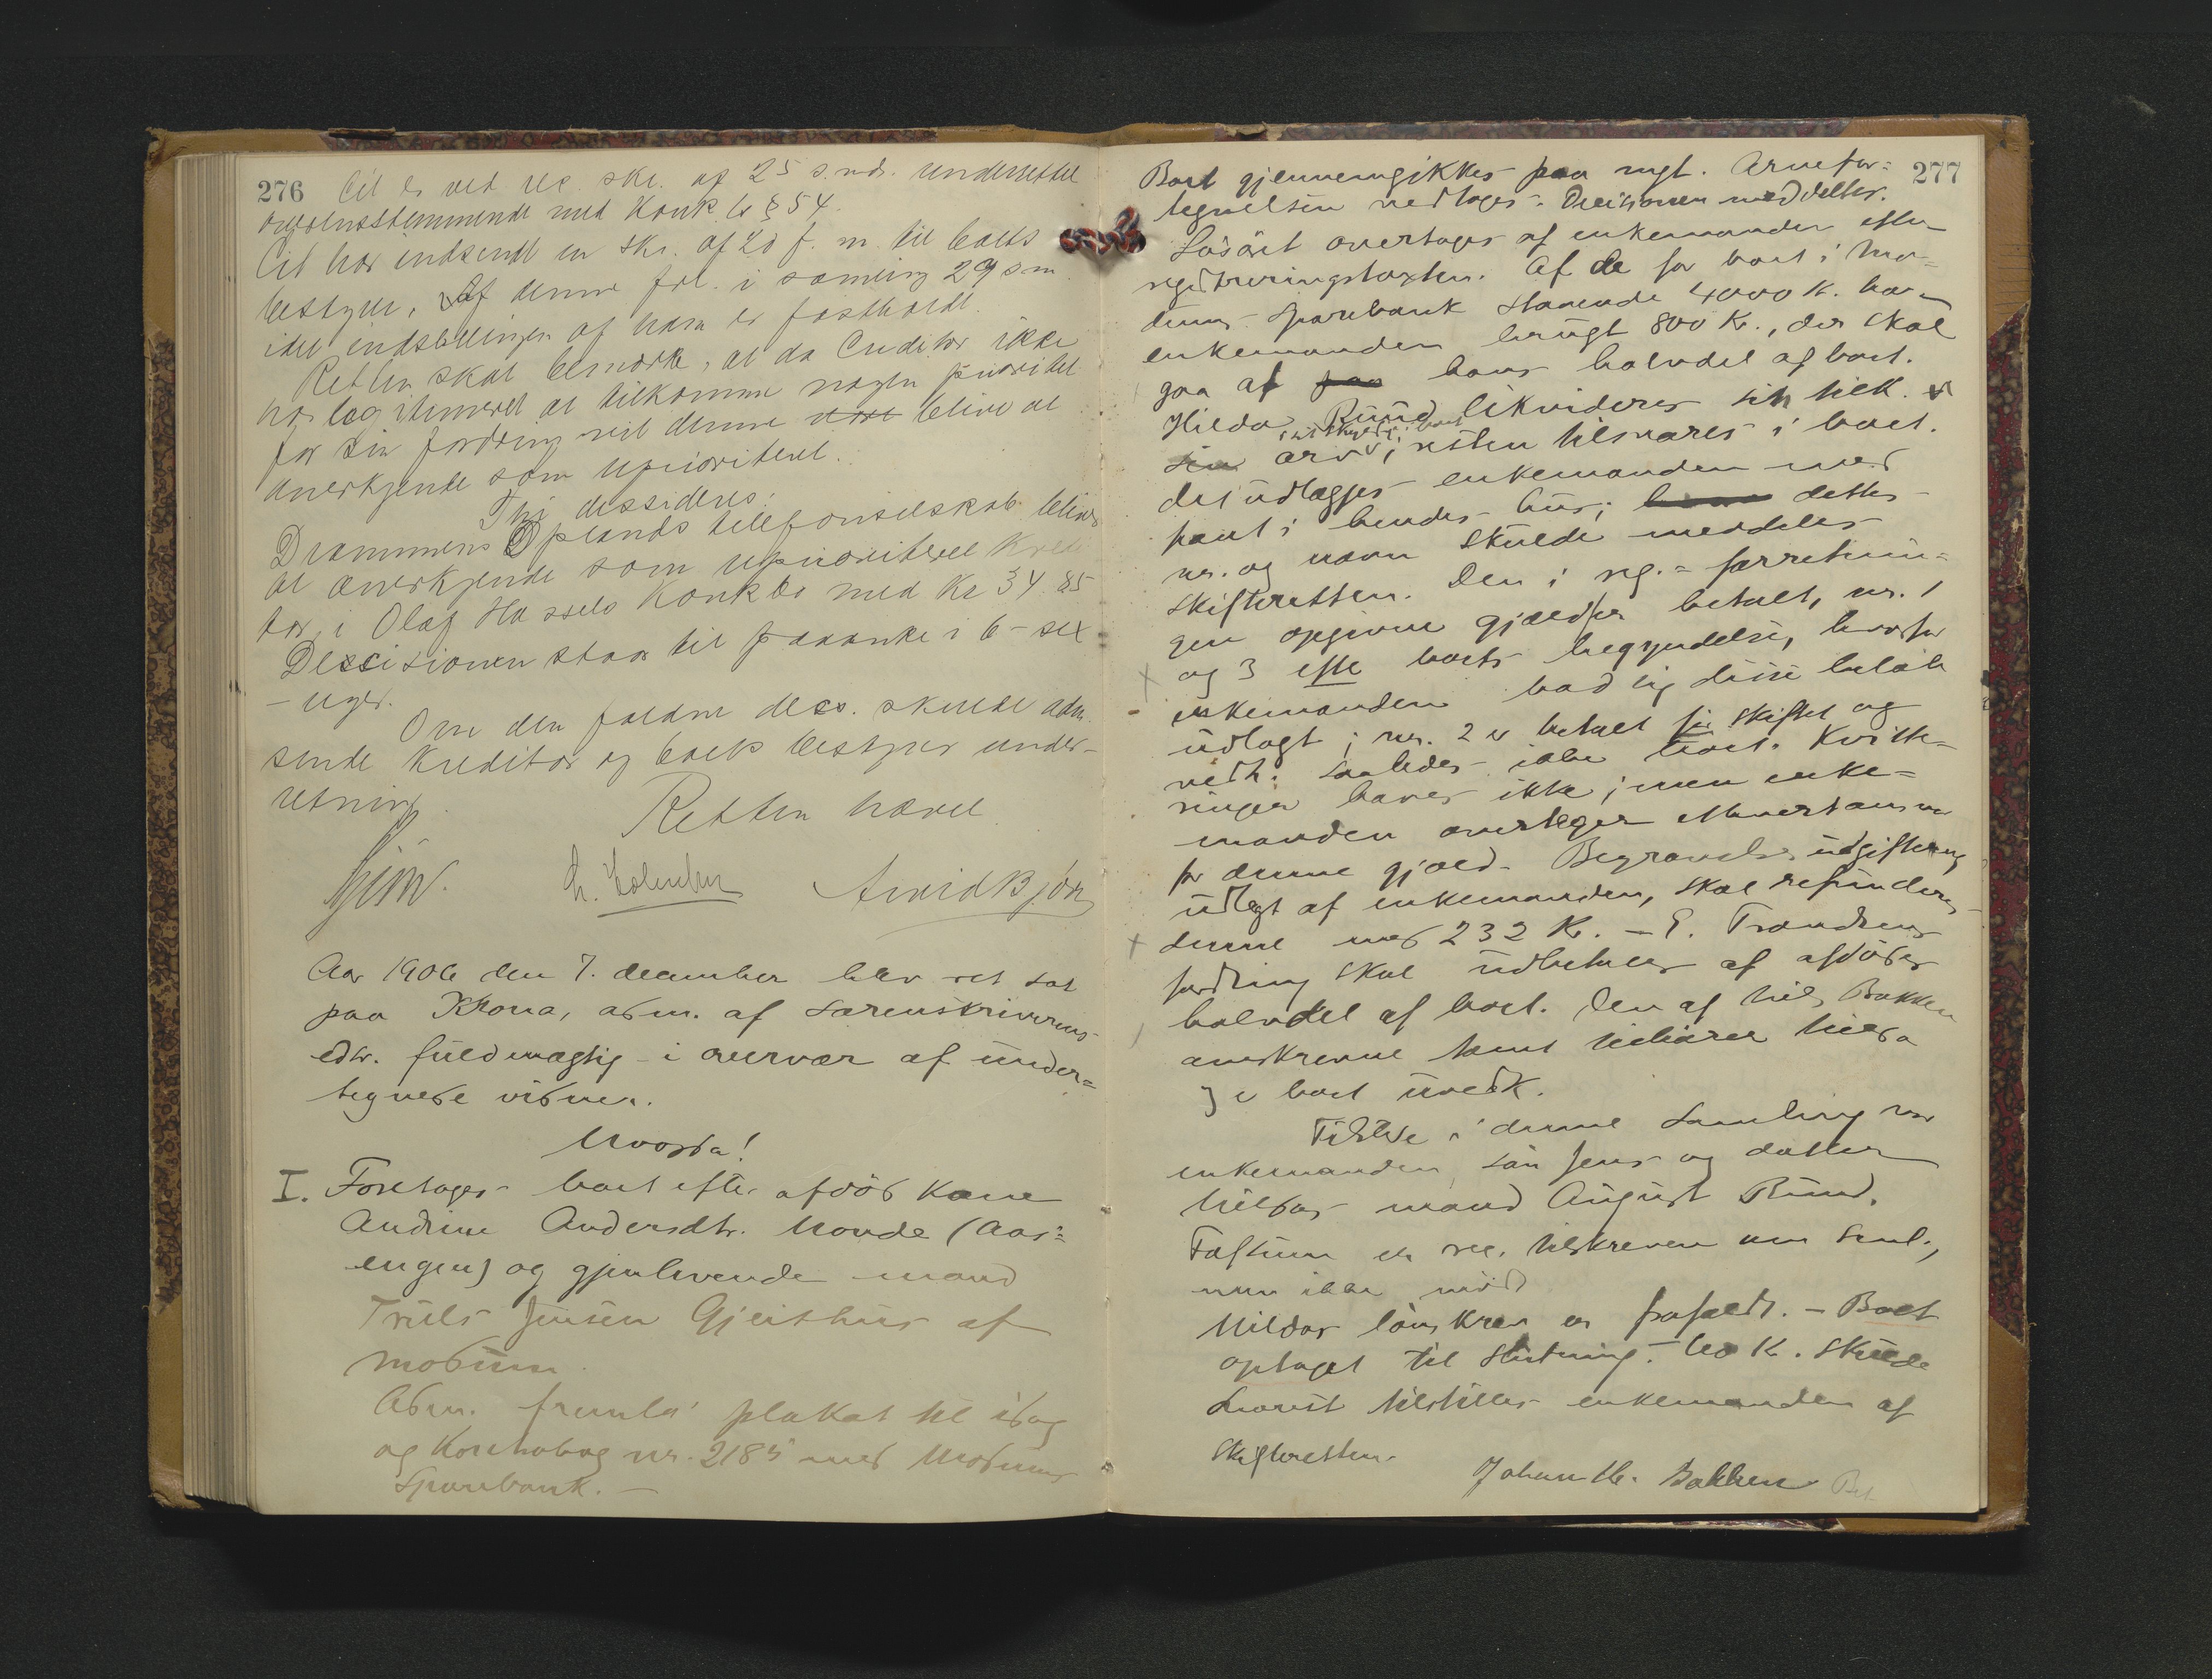 276
Cit er ved rec. skr. af 25 s. md. underrettet
overensstemmende med Konk. ls § 54.
Cit har indsendt en skr. af 28 f. m. til boets
bestyrer. Af denne frl. i samling 29 s m
idet indstillingen af ham er fastholdt.
Retten skal bemærke, at da Creditor ikke
har legitimeret at tilkomme nogen prioritet
for sin fordring vil denne blive at
anerkjende som uprioriteret.
Thi dessideres:
Drammens Oplands telefonselskab bliver
at anerkjende som uprioriteret Kredi
tor i Olaf Hassels Konkbo med Kr 34.85
Descisionen staar til paaanke i 6 - sex
- uger.
Om den faldne dess. skulde adm.
sende Kreditor og boets bestyrer under-
retning.
Retten hævet.
Arvid Bjør
Aar 1906 den 7. december blev ret sat
paa Krona, adm. af sorenskriverens
edsv. fuldmægtig i overvær af under=
tegnede vidner.
Hvorda!
I. Foretages boet efter afdød Kone
Andrine Andersdtr. Hovde (Aas=
engen) og gjenlevende mand
Truls Jensen Gjeithus af
Modum.
Adm. fremla' plakat til idag
og Kontrabog nr. 2185 med Modums
Sparebank. -
277
Boet gjennemgikkes paa nyt. Arvefor=
tegnelsen vedtoges. Decisionen meddeltes.
Løsøret overtages af enkemanden efter
registreringstaxten. Af de for boet i Mo=
dums Sparebank staaende 4000 K. har
enkemanden brugt 800 Kr., der skal
gaa af paa hans halvdel af boet.
Hilda Ruud likvideres sin tilk.
sin arv i sit skyld i boet, resten tilsvares i boet.
det udlægges enkemanden med
pant i hendes hus; dettes
nr. og navn skulde meddeles
skifteretten. Den i reg.= forretnin=
gen opgivne gjæld er betalt, nr. 1
og 3 efter boets begyndelse, hvorfor
enkemanden bad sig disse beløb
udlagt; nr. 2 er betalt før skiftet og
vedk. saaledes ikke boet. Kvitte=
ringer haves ikke; men enke=
manden overtager ethvert ansvar
for denne gjæld. Begravelsesudgifterne,
udlagt af enkemanden, skal refunderes
denne med 232 Kr. - E. Trandsens
fordring skal udbetales af afdødes
halvdel af boet. Den af Nils Bakken
anskrevne tomt tilhører Hilda
og er boet uvedk.
Tilstede i denne samling var
enkemanden, søn Jens og datter
Hildas mand August Ruud.
Tostrum er rec. tilskreven om saml.,
men ikke mødt
Hildas lønskrav er frafaldt. - Boet
optaget til slutning. 40 K. skulde
snarest tilstilles enkemanden af
skifteretten.
Johan Chr. Bakken